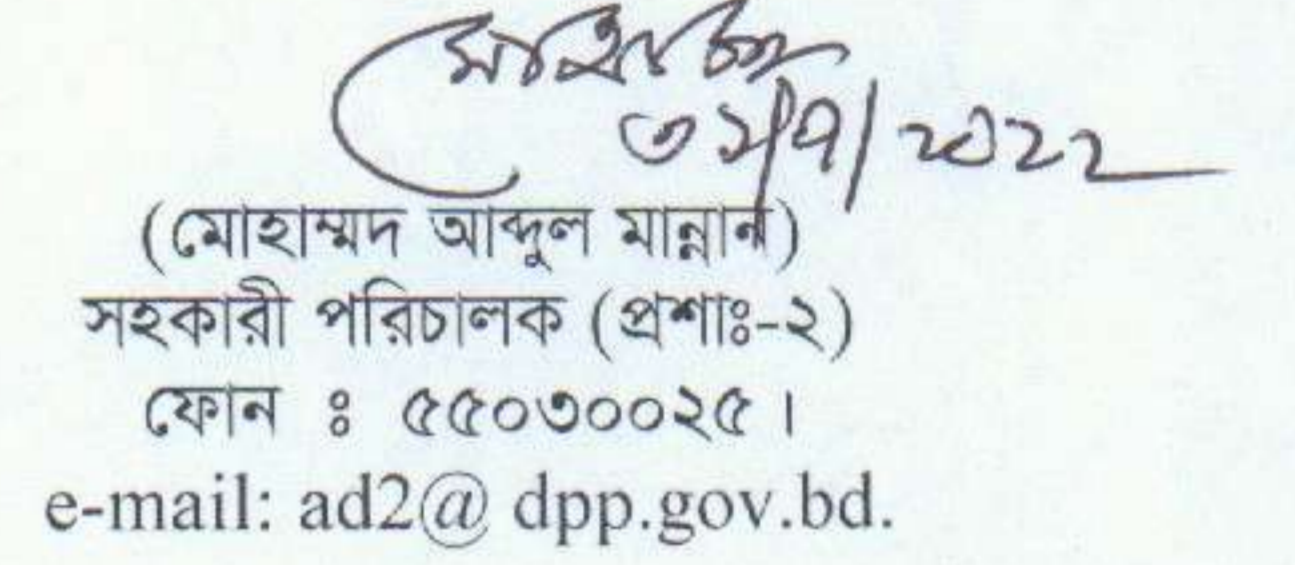 ৩১/৭/২০২২
(মোহাম্মদ আব্দুল মান্নান)
সহকারী পরিচালক (প্রশাঃ-২)
ফোন ঃ ৫৫০৩০০২৫।
e-mail: ad2@ dpp.gov.bd.